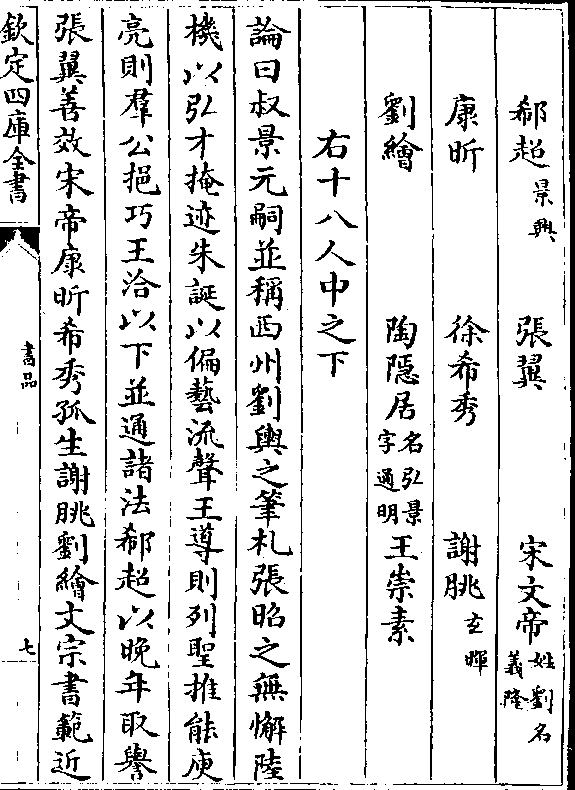 郗超景興　張翼　宋文帝姓劉名義隆
康昕　徐希秀　謝朓玄暉
劉繪　陶隱居名弘景字通明　王崇素
右十八人中之下
論曰叔景元嗣並稱西州劉輿之筆札張昭之無懈陸
機以弘才掩迹朱誕以偏藝流聲王導則列聖推能庾
亮則羣公挹巧王洽以下並通諸法郗超以晚年取譽
張翼善效宋帝康昕希秀孤生謝朓劉繪文宗書範近
欽定四庫全書
書品
七